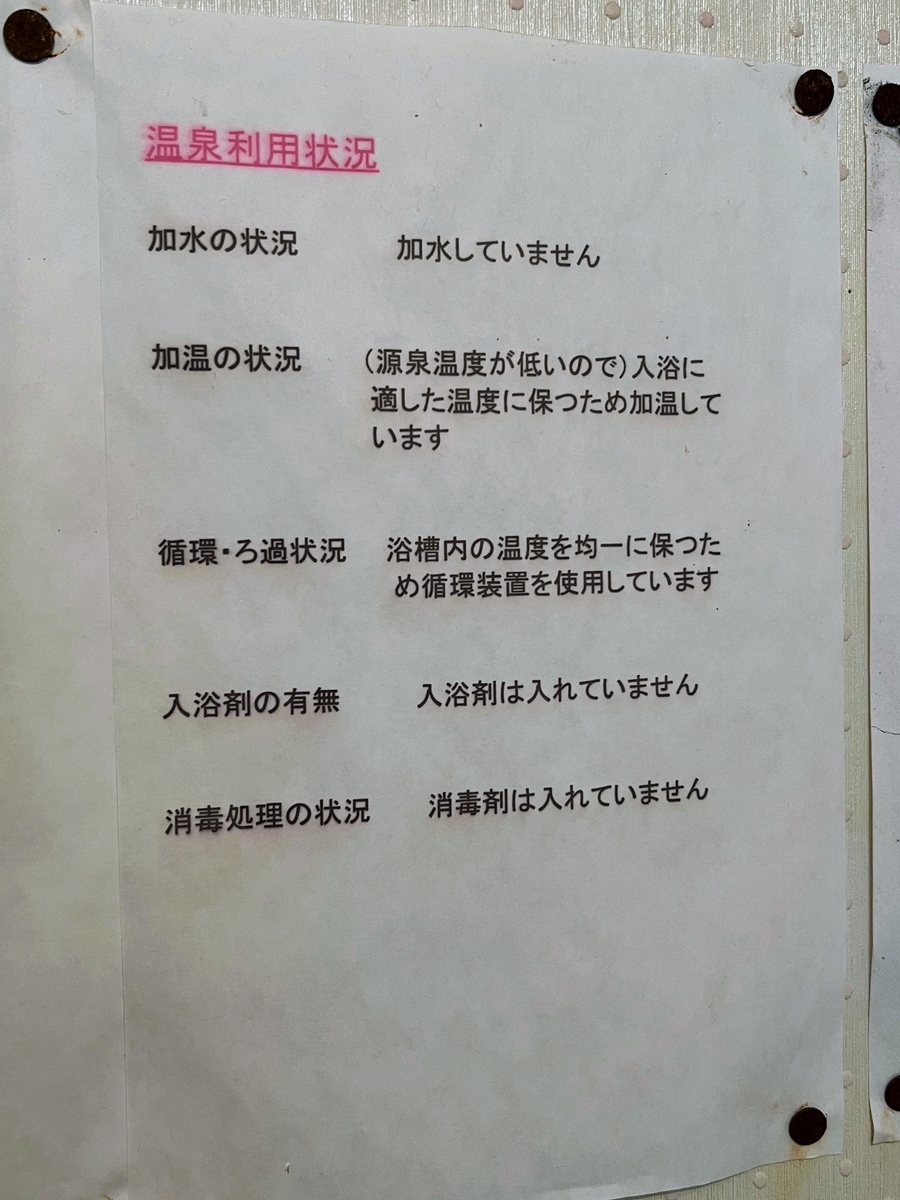 温泉利用状況
加水の状況 加水していません
加温の状況 (源泉温度が低いので)入浴に
適した温度に保つため加温して
います
循環・ろ過状況 浴槽内の温度を均一に保つた
め循環装置を使用しています
入浴剤の有無 入浴剤は入れていません
消毒処理の状況 消毒剤は入れていません